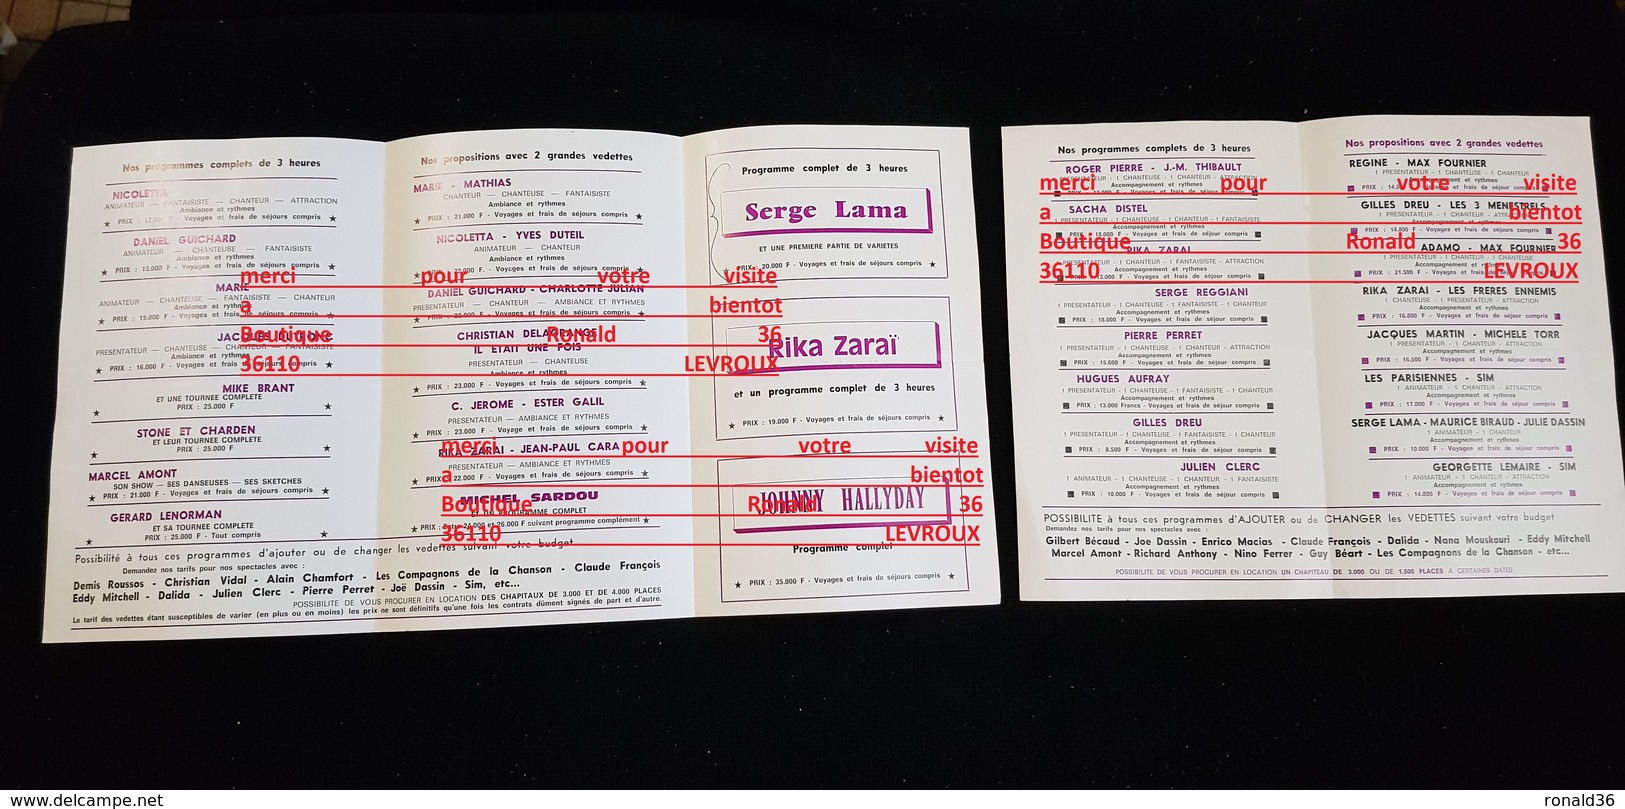 Nos programmes complets de 3 heures
NICOLETTA
ANIMATEUR — FANTAISISTE — CHANTEUR — ATTRACTION
Ambiance et rythmes
Voyages et frais de séjours compris ★
DANIEL GUICHARD
ANIMATEUR — CHANTEUSE — FANTAISISTE
★ PRIX : 15.000 F - Voyages et frais de séjours compris ★
MARIE
ANIMATEUR — CHANTEUSE — FANTAISISTE — CHANTEUR
Ambiance et rythmes
★ PRIX : 15.000 F - Voyages et frais de séjours compris ★
JACQUES DUTRONC
PRESENTATEUR — CHANTEUSE — FANTAISISTE
Ambiance et rythmes
★ PRIX : 16.000 F - Voyages et frais de séjours compris ★
MIKE BRANT
ET UNE TOURNEE COMPLETE
★ PRIX : 25.000 F ★
STONE ET CHARDEN
ET LEUR TOURNEE COMPLETE
★ PRIX : 25.000 F ★
MARCEL AMONT
SON SHOW — SES DANSEUSES — SES SKETCHES
★ PRIX : 21.000 F - Voyages et frais de séjours compris ★
GERARD LENORMAN
ET SA TOURNEE COMPLETE
★ PRIX : 25.000 F - Tout compris ★
Nos propositions avec 2 grandes vedettes
MARIE - MATHIAS
CHANTEUR — CHANTEUSE — FANTAISISTE
Ambiance et rythmes
★ PRIX : 21.000 F - Voyages et frais de séjours compris ★
NICOLETTA - YVES DUTEIL
ANIMATEUR — CHANTEUR
Ambiance et rythmes
Voyages et frais de séjours compris
DANIEL GUICHARD - CHARLOTTE JULIAN
PRESENTATEUR — CHANTEUR — AMBIANCE ET RYTHMES
Voyages et frais de séjours compris ★
CHRISTIAN DELAGRANGE
IL ETAIT UNE FOIS
PRESENTATEUR — CHANTEUSE
Ambiance et rythmes
★ PRIX : 23.000 F - Voyages et frais de séjours compris ★
C. JEROME - ESTER GALIL
PRESENTATEUR — AMBIANCE ET RYTHMES
★ PRIX : 23.000 F - Voyage et frais de séjours compris ★
RIKA ZARAI - JEAN-PAUL CARA
PRESENTATEUR — AMBIANCE ET RYTHMES
22.000 F - Voyages et frais de séjours compris ★
MICHEL SARDOU
ET UN PROGRAMME COMPLET
★ PRIX : Entre 24.000 et 26.000 F suivant programme complément ★
Possibilité à tous ces programmes d'ajouter ou de changer les vedettes suivant votre budget
Demandez nos tarifs pour nos spectacles avec :
Demis Roussos - Christian Vidal - Alain Chamfort - Les Compagnons de la Chanson - Claude François
Eddy Mitchell - Dalida - Julien Clerc - Pierre Perret - Joë Dassin - Sim, etc...
POSSIBILITE DE VOUS PROCURER EN LOCATION DES CHAPITAUX DE 3.000 ET DE 4.000 PLACES
Le tarif des vedettes étant susceptibles de varier (en plus ou en moins) les prix ne sont définitifs qu'une fois les contrats dûment signés de part et d'autre.
Programme complet de 3 heures
Serge Lama
ET UNE PREMIERE PARTIE DE VARIETES
★ PRIX : 20.000 F - Voyages et frais de séjours compris ★
Rika Zaraï
et un programme complet de 3 heures
★ PRIX : 19.000 F - Voyages et frais de séjours compris ★
JOHNNY HALLYDAY
Programme complet
★ PRIX : 35.000 F - Voyages et frais de séjours compris ★
merci pour votre visite
a bientot
Boutique Ronald 36
36110 LEVROUX
merci pour votre visite
a bientot
Boutique Ronald 36
36110 LEVROUX
Nos programmes complets de 3 heures
ROGER PIERRE - J.-M. THIBAULT
PRESENTATEUR - 1 CHANTEUSE - 1 CHANTEUR - ATTRACTION
Accompagnement et rythmes
Voyages et frais de séjour compris
SACHA DISTEL
1 PRESENTATEUR - 1 CHANTEUSE - 1 CHANTEUR - 1 FANTAISISTE
PRIX : 18.000 F - Voyages et frais de séjour compris
RIKA ZARAI
1 PRESENTATEUR - 1 CHANTEUR - 1 FANTAISISTE - 1 ATTRACTION
Accompagnement et rythmes
Voyages et frais de séjour compris
SERGE REGGIANI
1 PRESENTATEUR - 1 CHANTEUSE - 1 FANTAISISTE - 1 CHANTEUR
Accompagnement et rythmes
PRIX : 18.000 F - Voyages et frais de séjour compris
PIERRE PERRET
1 PRESENTATEUR - 1 CHANTEUR - 1 CHANTEUSE - 1 ATTRACTION
Accompagnement et rythmes
PRIX : 15.600 F - Voyages et frais de séjour compris
HUGUES AUFRAY
1 PRESENTATEUR - 1 CHANTEUR - 1 CHANTEUSE - 1 FANTAISISTE
Accompagnement et rythmes
PRIX : 13.000 Francs - Voyages et frais de séjour compris
GILLES DREU
1 PRESENTATEUR - 1 CHANTEUSE - 1 FANTAISISTE - 1 CHANTEUR
Accompagnement et rythmes
PRIX : 8.500 F - Voyages et frais de séjour compris
JULIEN CLERC
1 ANIMATEUR - 1 CHANTEUR - 1 CHANTEUSE - 1 FANTAISISTE
Accompagnement et rythmes
PRIX : 10.000 F - Voyages et frais de séjour compris
Nos propositions avec 2 grandes vedettes
REGINE - MAX FOURNIER
1 PRESENTATEUR - 1 CHANTEUR
Voyages et frais de séjour compris
GILLES DREU - LES 3 MENESTRELS
1 PRESENTATEUR - 1 CHANTEUR
PRIX : 14.800 F - Voyages et frais de séjour compris
ADAMO - MAX FOURNIER
Accompagnement et rythmes
PRIX : 21.500 F - Voyages et frais de séjour compris
RIKA ZARAI - LES FRERES ENNEMIS
1 CHANTEUSE - 1 PRESENTATEUR - 1 ATTRACTION
Accompagnement et rythmes
PRIX : 16.800 F - Voyages et frais de séjour compris
JACQUES MARTIN - MICHELE TORR
1 PRESENTATEUR - 1 CHANTEUR - ATTRACTION
Accompagnement et rythmes
PRIX : 16.500 F - Voyages et frais de séjour compris
LES PARISIENNES - SIM
1 ANIMATEUR - 1 CHANTEUR - ATTRACTION
Accompagnement et rythmes
PRIX : 17.000 F - Voyages et frais de séjour compris
SERGE LAMA - MAURICE BIRAUD - JULIE DASSIN
1 ANIMATEUR - 1 CHANTEUR
Accompagnement et rythmes
PRIX : 10.000 F - Voyages et frais de séjour compris
GEORGETTE LEMAIRE - SIM
1 ANIMATEUR - 1 CHANTEUR - ATTRACTION
Accompagnement et rythmes
PRIX : 14.800 F - Voyages et frais de séjour compris
POSSIBILITE à tous ces programmes d'AJOUTER ou de CHANGER les VEDETTES suivant votre budget
Demandez nos tarifs pour nos spectacles avec :
Gilbert Bécaud - Joe Dassin - Enrico Macias - Claude François - Dalida - Nana Mouskouri - Eddy Mitchell
Marcel Amont - Richard Anthony - Nino Ferrer - Guy Béart - Les Compagnons de la Chanson - etc...
POSSIBILITE DE VOUS PROCURER EN LOCATION UN CHAPITEAU DE 3.000 OU DE 1.500 PLACES A CERTAINES DATES
merci pour votre visite
a bientot
Boutique Ronald 36
36110 LEVROUX
www.delcampe.net
ronald36